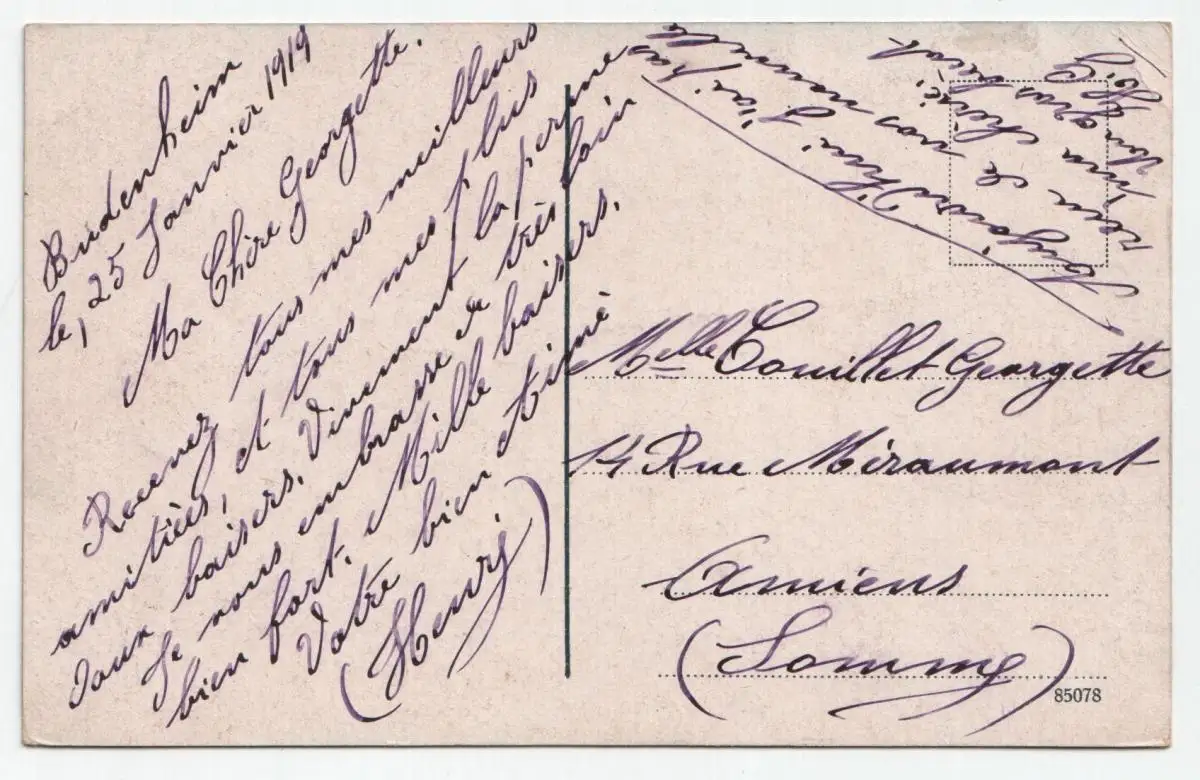 Budenheim
le, 25 Janvier 1919
Ma Chère Georgette.
Recevez tous mes meilleurs
amitièes, et tous mes plus
doux baisers. Vivement la perme
Je vous embrasse de très loin
bien fort. Mille baisers.
Votre bien Aimé
(Henri)
Aujourd'hui J'ai pas
reçu de vos nouvelle
Melle Couillet Georgette
14 Rue Miraumont
Amiens
(Somme)
85078